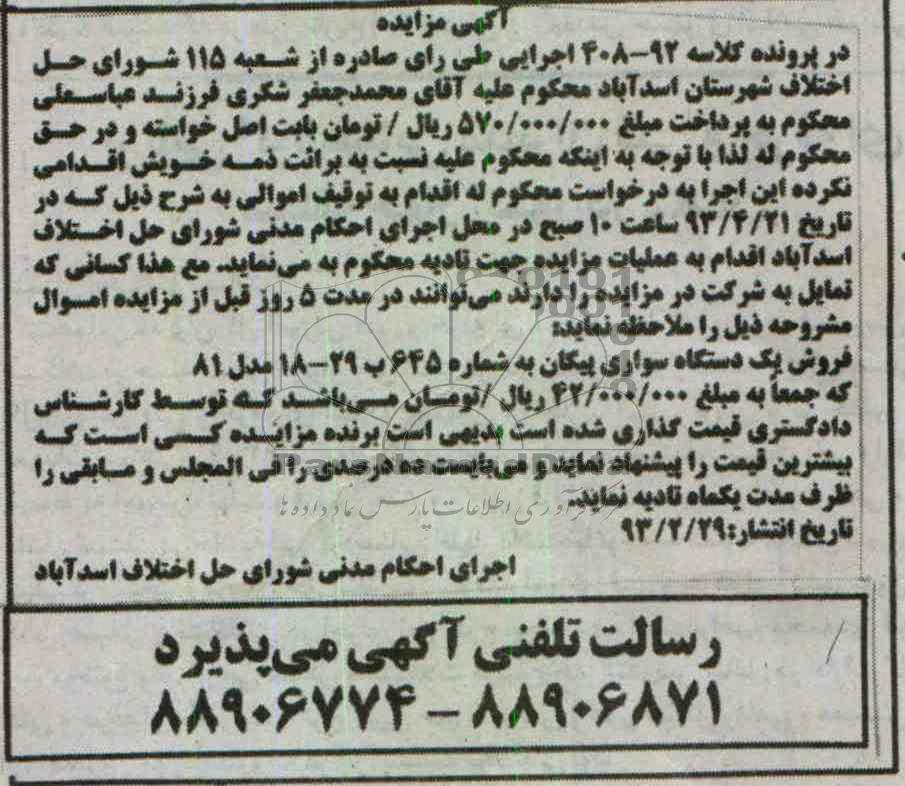 آگهی مزایده
در پرونده کلاسه ۹۲-۴۰۸ اجرایی طی رای صادره از شعبه ۱۱۵ شورای حل
اختلاف شهرستان اسدآباد محکوم علیه آقای محمدجعفر شکری فرزند عباسعلی
محکوم به پرداخت مبلغ ۵۷۰/۰۰۰/۰۰۰ ریال / تومان بابت اصل خواسته و در حق
محکوم له لذا با توجه به اینکه محکوم علیه نسبت به برائت ذمه خویش اقدامی
نکرده این اجرا به درخواست محکوم له اقدام به توقیف اموالی به شرح ذیل که در
تاریخ ۹۳/۴/۲۱ ساعت ۱۰ صبح در محل اجرای احکام مدنی شورای حل اختلاف
اسدآباد اقدام به عملیات مزایده جهت تادیه محکوم به می‌نماید. مع هذا کسانی که
تمایل به شرکت در مزایده را دارند می‌توانند در مدت ۵ روز قبل از مزایده اموال
مشروحه ذیل را ملاحظه نمایند:
فروش یک دستگاه سواری پیکان به شماره ۶۴۵ ب ۲۹-۱۸ مدل ۸۱
که جمعاً به مبلغ ۴۲/۰۰۰/۰۰۰ ریال /تومان می‌باشد که توسط کارشناس
دادگستری قیمت گذاری شده است بدیهی است برنده مزایده کسی است که
بیشترین قیمت را پیشنهاد نماید و می‌بایست ده درصدی را فی المجلس و مابقی را
ظرف مدت یکماه تادیه نماید.
تاریخ انتشار:۹۳/۲/۲۹
اجرای احکام مدنی شورای حل اختلاف اسدآباد
رسالت تلفنی آگهی می‌پذیرد
۸۸۹۰۶۷۷۴ - ۸۸۹۰۶۸۷۱